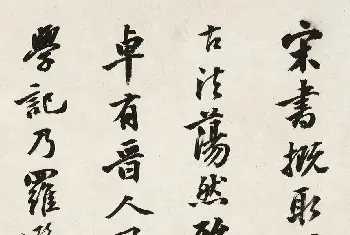 宋書概取
古法蕩然
卓有晋人
學記乃羅